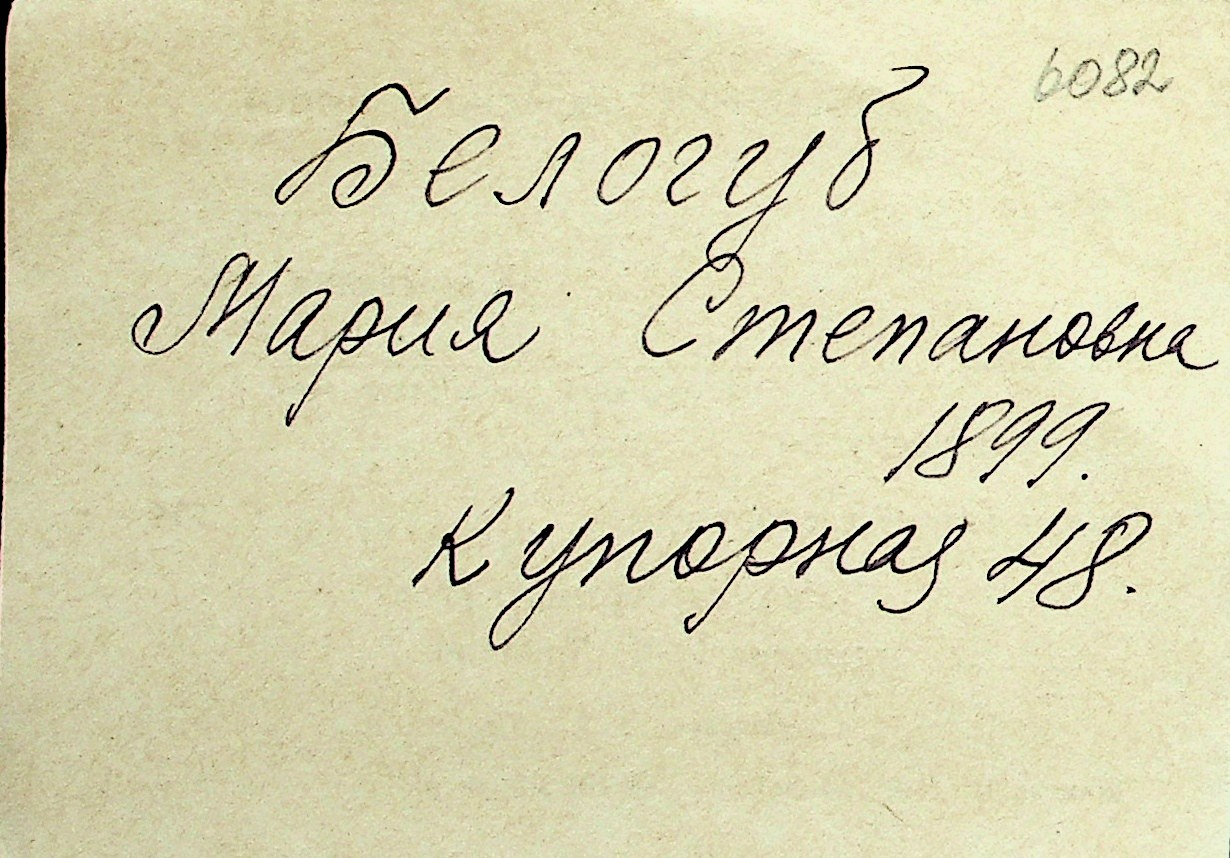 6082
Белогуб
Мария Степановна
1899.
Купорная 48.